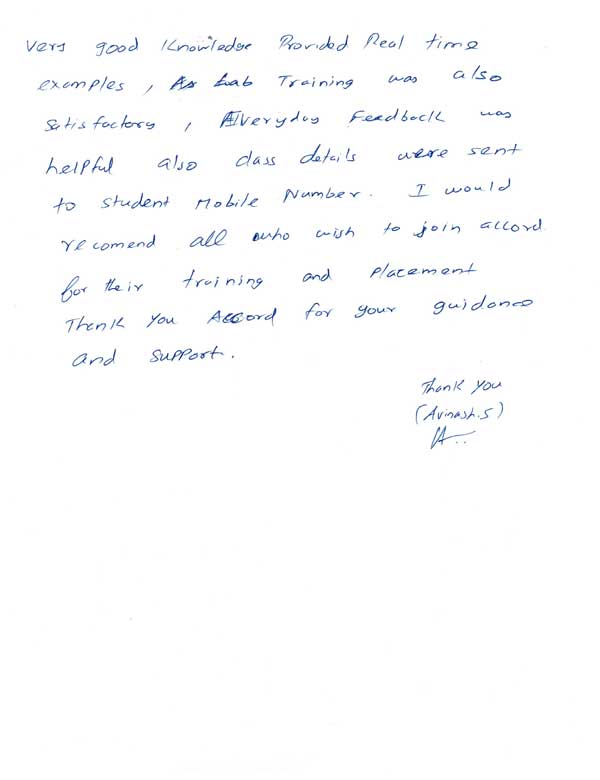 Very good Knowledge Provided Real time
examples, Lab Training was also
satisfactory, Everyday Feedback was
helpful also class details were sent
to student Mobile Number. I would
recomend all who wish to join accord
for their training and placement
Thank You Accord for your guidance
and support.
Thank You
(Avinash.S)